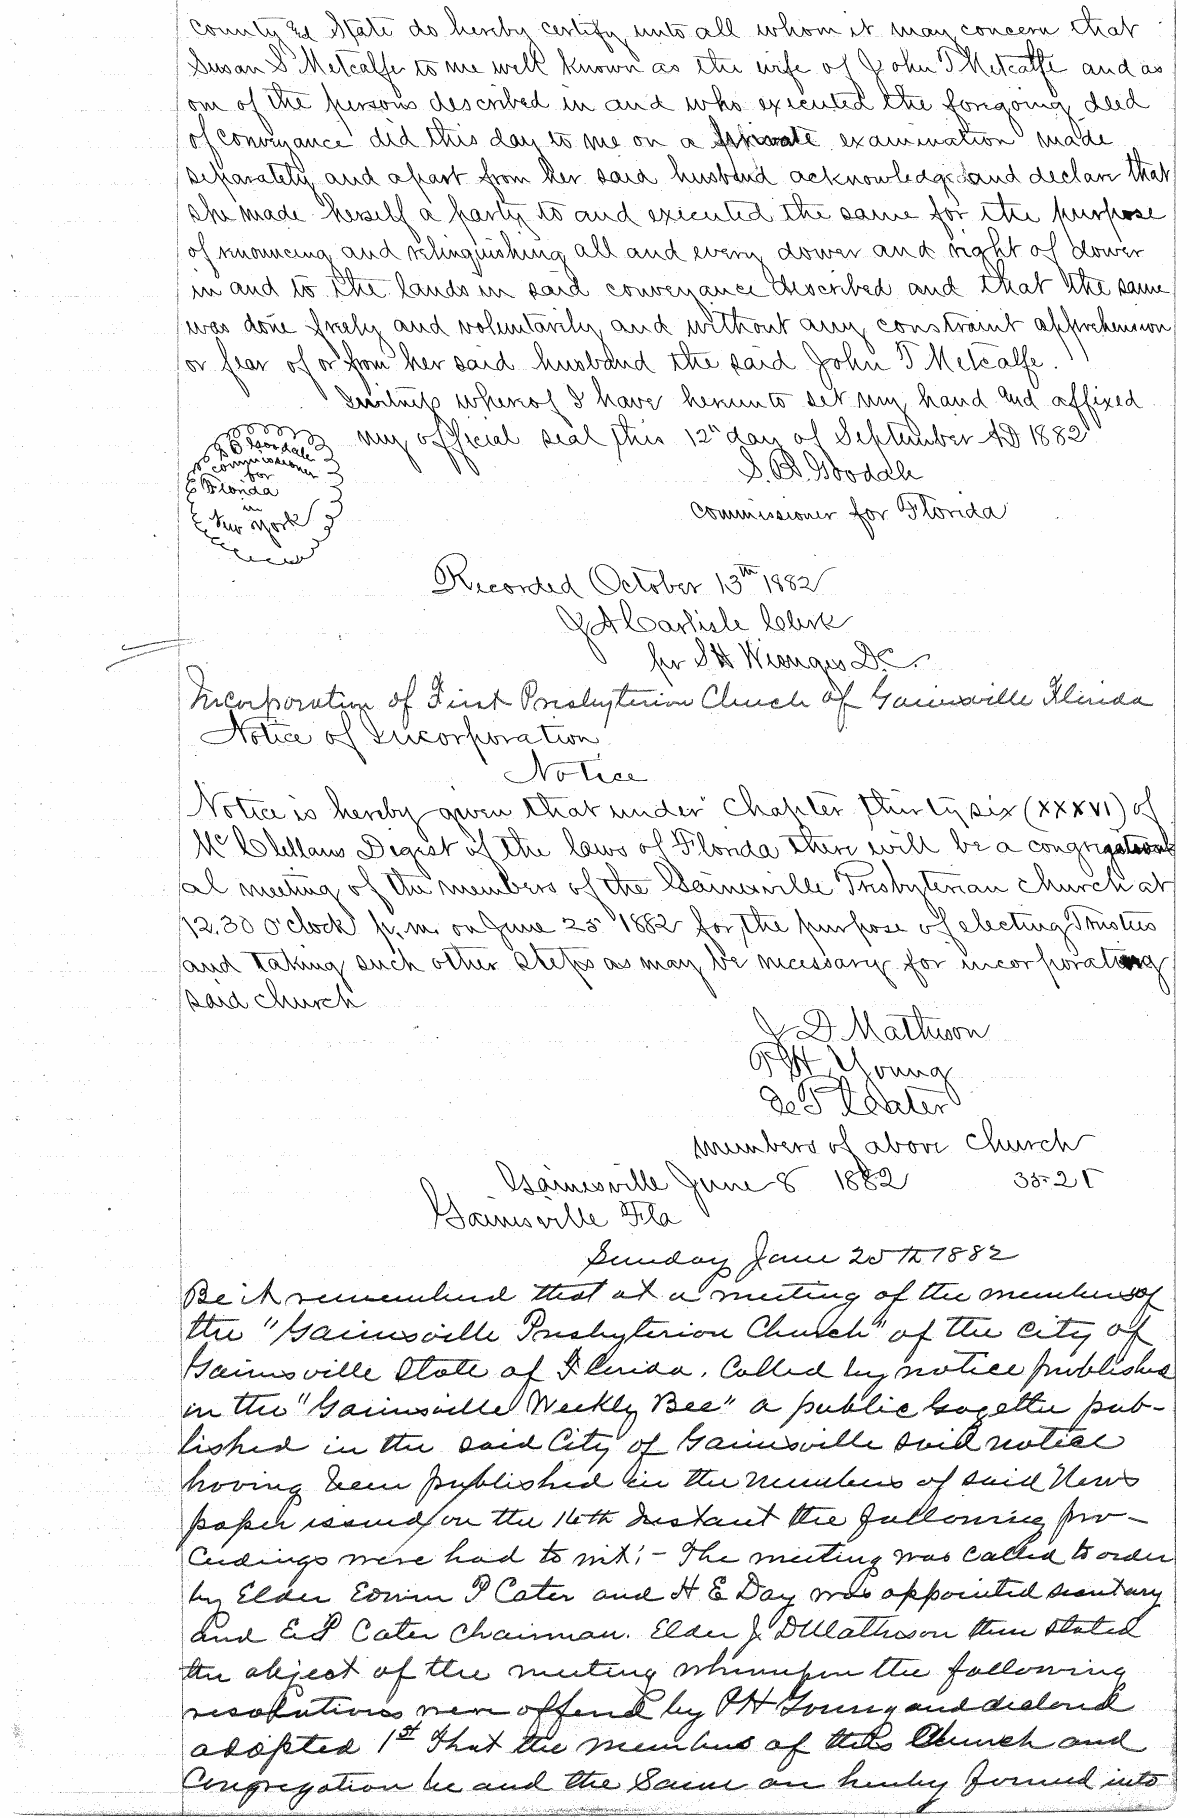 County & State do hereby certify unto all whom it may concern that
Susan S Metcalfe to me well known as the wife of John T Metcalfe and as
one of the persons described in and who executed the foregoing deed
of conveyance did this day to me on a private examination made
separately and apart from her said husband acknowledge and declare that
she made herself a party to and executed the same for the purpose
of renouncing and relinquishing all and every dower and right of dower
in and to the lands in said conveyance described and that the same
was done freely and voluntarily and without any constraint apprehension
or fear of or from her said husband the said John T Metcalfe.
In witness whereof I have hereunto set my hand and affixed
my official seal this 12" day of September AD 1882
S. B. Goodale
Commissioner for Florida
S B Goodale
commissioner
for
Florida
in
New York
Recorded October 13th 1882
J A Carlisle Clerk
pr S H Wienges D.C.
Incorporation of First Presbyterian Church of Gainesville Florida
Notice of Incorporation
Notice
Notice is hereby given that under Chapter thirty six (XXXVI) of
McClellans Digest of the laws of Florida there will be a congregation
al meeting of the members of the Gainesville Presbyterian church at
12.30 o'clock p.m. on June 25 1882 for the purpose of electing Trustees
and taking such other steps as may be necessary for incorporating
said church
J D Matheson
P H Young
E P Cater
members of above church
Gainesville June 8 1882 35-2t
Gainesville Fla
Sunday June 25th 1882
Be it remembered that at a meeting of the members of
the "Gainesville Presbyterian Church" of the city of
Gainesville State of Florida. Called by notice published
in the "Gainesville Weekly Bee" a public Gazette pub-
lished in the said City of Gainesville said notice
having been published in the numbers of said News
paper issued on the 16th Instant the following pro-
ceedings were had to wit:- The meeting was called to order
by Elder Edwin P Cater and H E Day was appointed secretary
and E P Cater Chairman. Elder J D Matheson then stated
the object of the meeting whereupon the following
resolutions were offered by P H Young and declared
adopted 1st That the members of this Church and
Congregation be and the same are hereby formed into